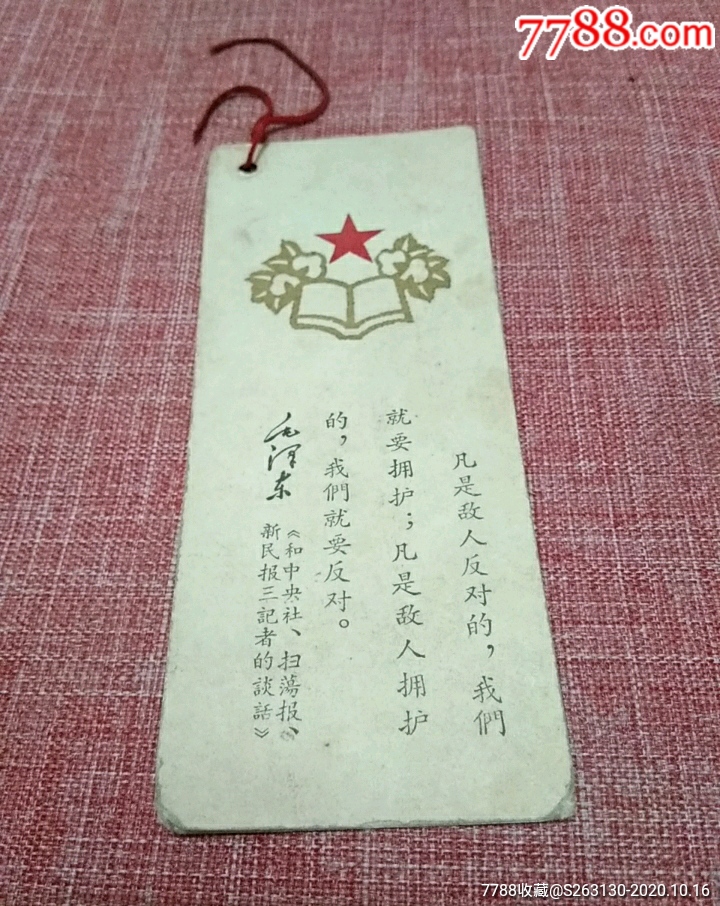 7788.com
凡是敌人反对的，我們
就要拥护；凡是敌人拥护
的，我們就要反对。
毛泽东
《和中央社、扫蕩报、
新民报三記者的談話》
7788收藏@S263130-2020.10.16